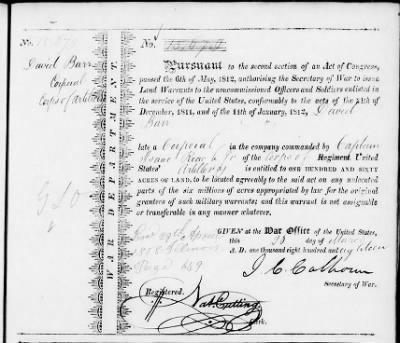 No.
David Barr
Corporal
Corps of Artillery
WAR DEPARTMENT.
GLO
No.
Pursuant to the second section of an Act of Congress,
passed the 6th of May, 1812, authorising the Secretary of War to issue
Land Warrants to the noncommissioned Officers and Soldiers enlisted in
the service of the United States, conformably to the acts of the 24th of
December, 1811, and of the 11th of January, 1812, David
Barr
late a Corporal in the company commanded by Captain
of the Corps of Regiment United
States' Artillery is entitled to ONE HUNDRED AND SIXTY
ACRES OF LAND, to be located agreeably to the said act on any unlocated
parts of the six millions of acres appropriated by law for the original
grantees of such military warrants; and this warrant is not assignable
or transferable in any manner whatever.
GIVEN at the War Office of the United States,
this day of
A. D. one thousand eight hundred and
1818
J. C. Calhoun
Secretary of War.
Registered.
Nat. Cutting
Clerk.